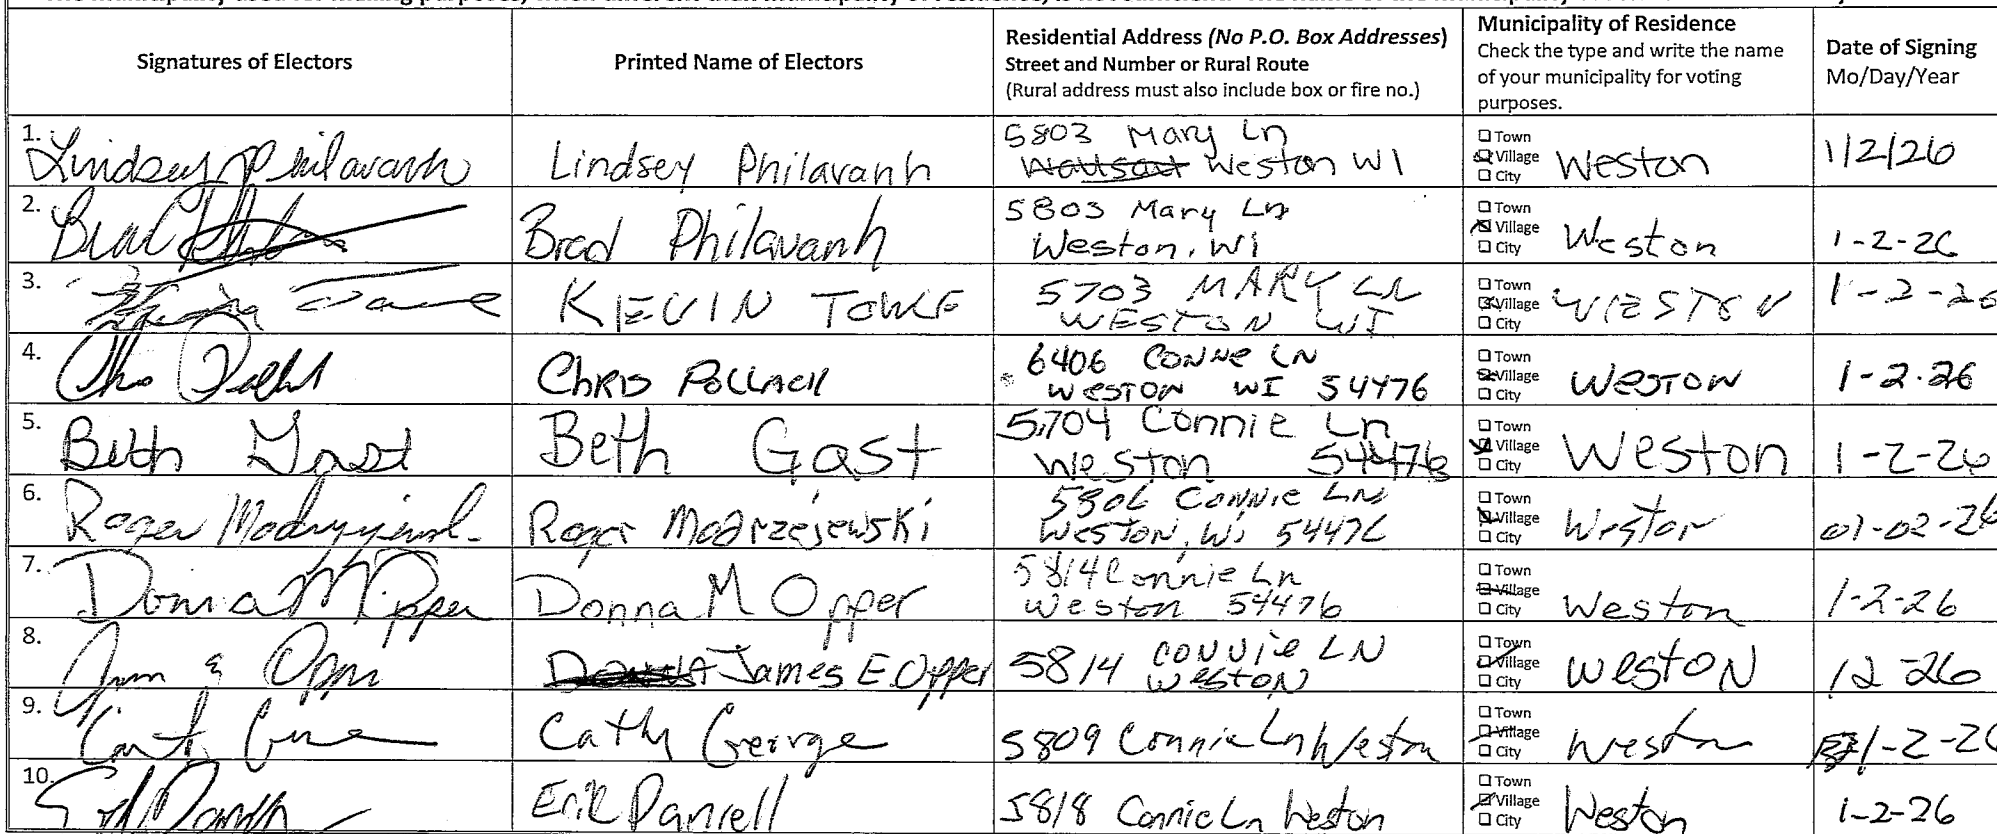 Signatures of Electors
Printed Name of Electors
Residential Address (No P.O. Box Addresses)
Street and Number or Rural Route
(Rural address must also include box or fire no.)
Municipality of Residence
Check the type and write the name
of your municipality for voting
purposes.
Date of Signing
Mo/Day/Year
1.
Lindsey Philavanh
Lindsey Philavanh
5803 Mary Ln
Weston WI
Town
Village
City
Weston
1/2/26
2.
Brad
Brad Philavanh
5803 Mary Ln
Weston, Wi
Town
Village
City
Weston
1-2-26
3.
KEVIN TOWE
5703 MARY LN
WESTON WI
Town
Village
City
WESTON
1-2-26
4.
CHRIS POLLACK
6406 CONNE LN
WESTON WI 54476
Town
Village
City
WESTON
1-2-26
5.
Beth Gast
Beth Gast
5704 Connie Ln
Weston 54476
Town
Village
City
Weston
1-2-26
6.
Roger
Roger Modrzejewski
5806 CONNIE LN
WESTON, Wi 54476
Town
Village
City
Weston
01-02-26
7.
Donna M Opper
Donna M Opper
5814 Connie Ln
Weston 54476
Town
Village
City
Weston
1-2-26
8.
James E. Opper
5814 CONNIE LN
WESTON
Town
Village
City
WESTON
12-26
9.
Cathy George
5809 Connie Ln Weston
Town
Village
City
Weston
1-2-26
10.
Erik Daniell
5818 Connie Ln Weston
Town
Village
City
Weston
1-2-26